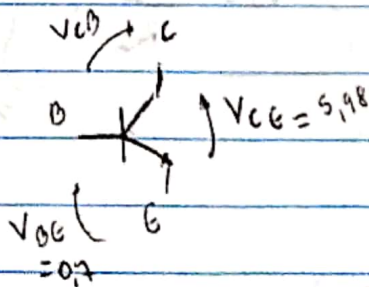 VCB
C
B
VCE = 5,98
E
VBE
= 0,7